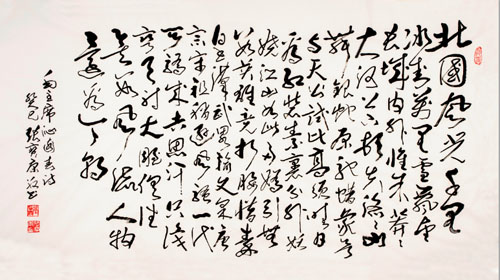 北國風光千里
冰封萬里雪飄望
长城内外惟余莽莽
大河上下顿失滔滔山
舞銀蛇原馳蠟象欲
与天公試比高須晴日
看紅装素裹分外妖
娆江山如此多嬌引無
数英雄竞折腰惜秦
皇漢武略输文采唐
宗宋祖稍逊風骚一代
天骄成吉思汗只识
弯弓射大雕俱往
矣数風流人物
還看今朝
毛主席沁園春诗
癸巳 书